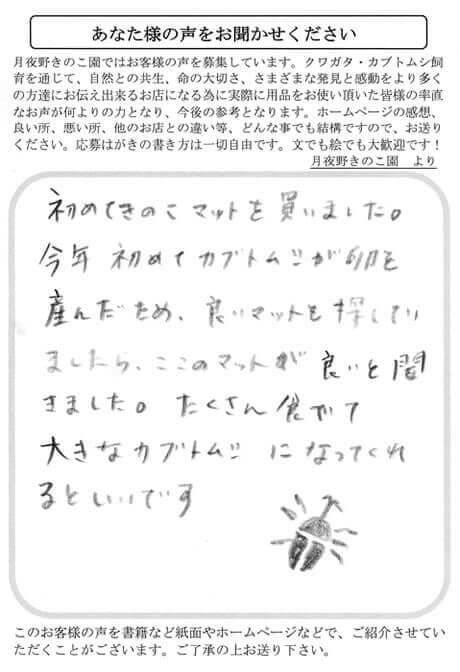 あなた様の声をお聞かせください
月夜野きのこ園ではお客様の声を募集しています。クワガタ・カブトムシ飼
育を通じて、自然との共生、命の大切さ、さまざまな発見と感動をより多く
の方達にお伝え出来るお店になる為に実際に用品をお使い頂いた皆様の率直
なお声が何よりの力となり、今後の参考となります。ホームページの感想、
良い所、悪い所、他のお店との違い等、どんな事でも結構ですので、お送り
ください。応募はがきの書き方は一切自由です。文でも絵でも大歓迎です！
月夜野きのこ園　より
初めてきのこマットを買いました。
今年初めてカブトムシが卵を
産んだため、良いマットを探してい
ましたら、ここのマットが良いと聞
きました。たくさん食べて
大きなカブトムシになってくれ
るといいです
このお客様の声を書籍など紙面やホームページなどで、ご紹介させてい
ただくことがございます。ご了承の上お送り下さい。